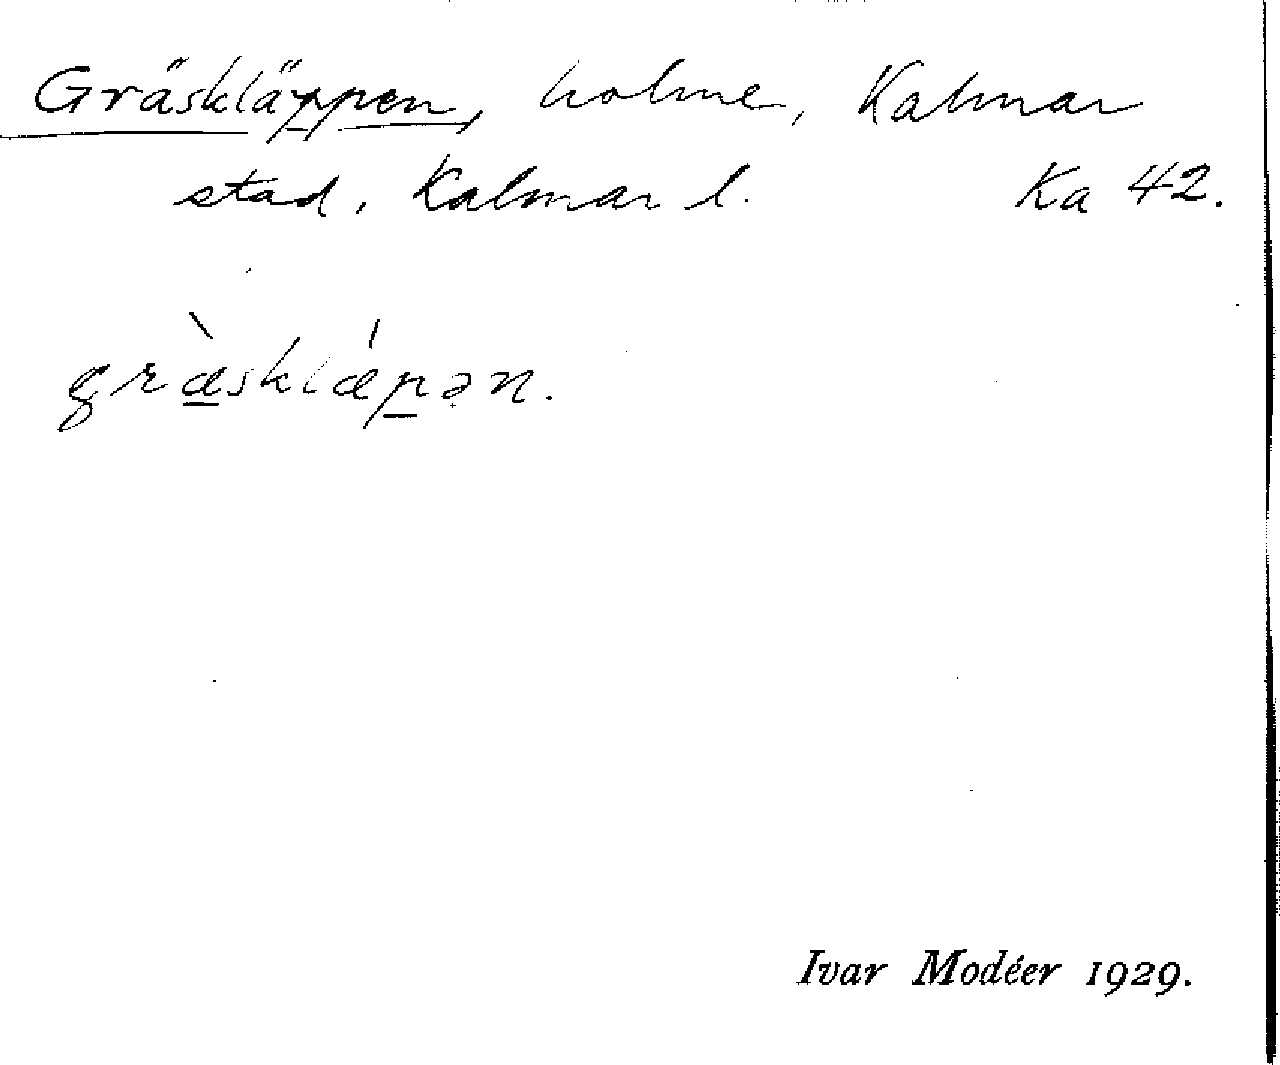 Gräskläppen, holme, Kalmar
stad, Kalmar l. Ka 42.
græ̠̀sklǽp̠ən.
Ivar Modéer 1929.